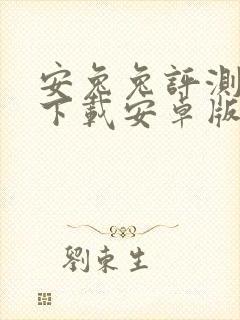 安兔兔評測
下載安卓版
劉東生